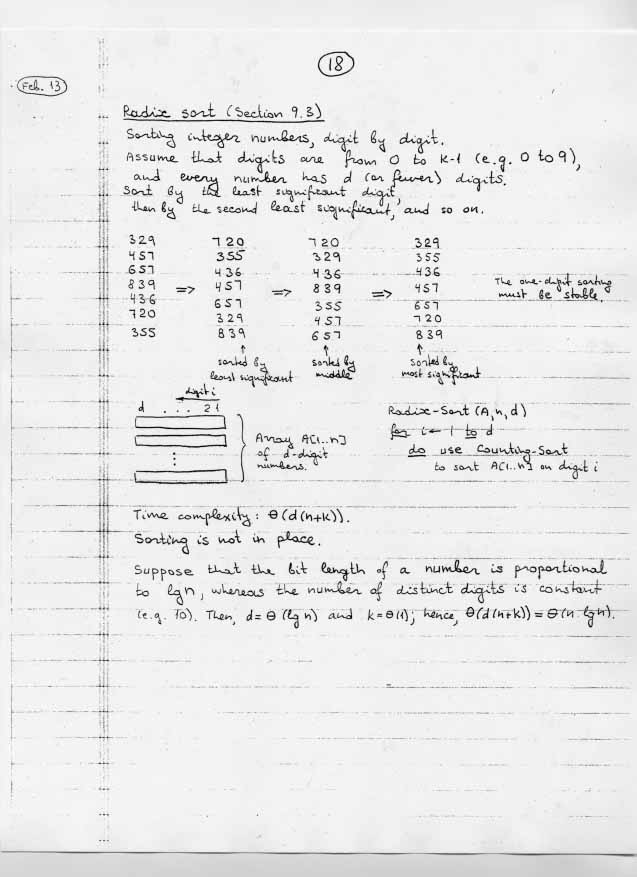 18
Feb. 13
Radix sort (Section 9.3)
Sorting integer numbers, digit by digit.
Assume that digits are from 0 to k-1 (e.g. 0 to 9),
and every number has d (or fewer) digits.
Sort by the least significant digit,
then by the second least significant, and so on.
329 720 720 329
457 355 329 355
657 436 436 436
839 => 457 => 839 => 457
436 657 355 657
720 329 457 720
355 839 657 839
The one-digit sorting
must be stable.
↑ sorted by least significant
↑ sorted by middle
↑ sorted by most significant
digit i
d ... 2 1
Array A[1..n]
of d-digit
numbers.
Radix-Sort (A, n, d)
for i ← 1 to d
do use Counting-Sort
to sort A[1..n] on digit i
Time complexity: Θ(d(n+k)).
Sorting is not in place.
Suppose that the bit length of a number is proportional
to lg n, whereas the number of distinct digits is constant
(e.g. 10). Then, d = Θ(lg n) and k = Θ(1); hence, Θ(d(n+k)) = Θ(n·lg n).